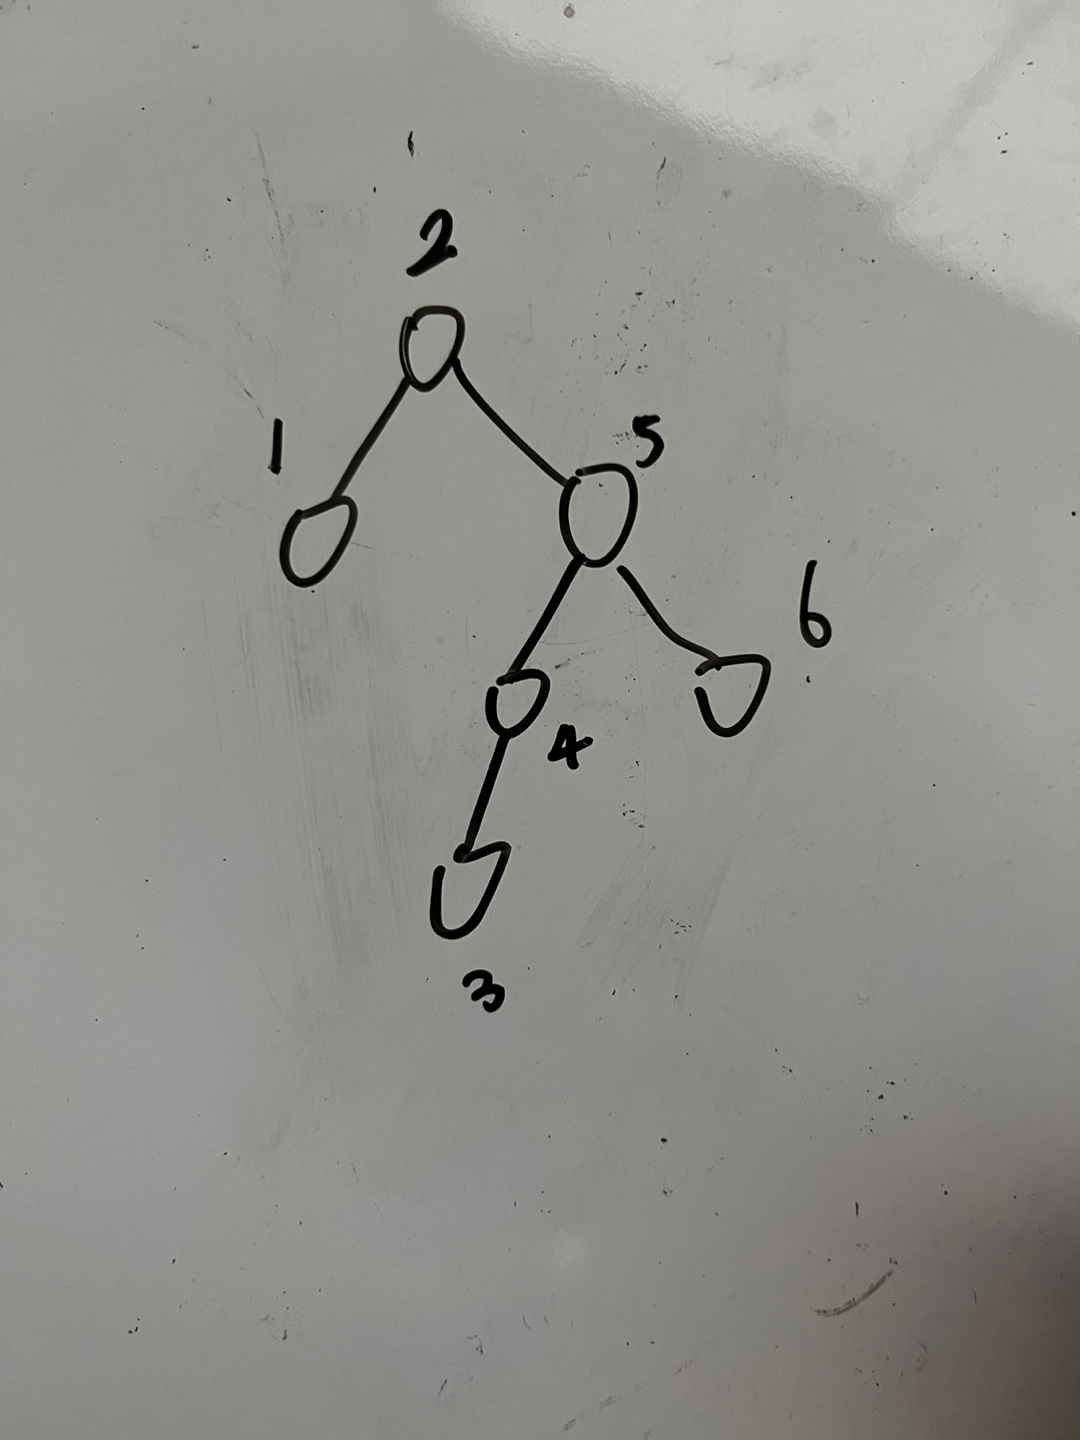 2
1
5
6
4
3